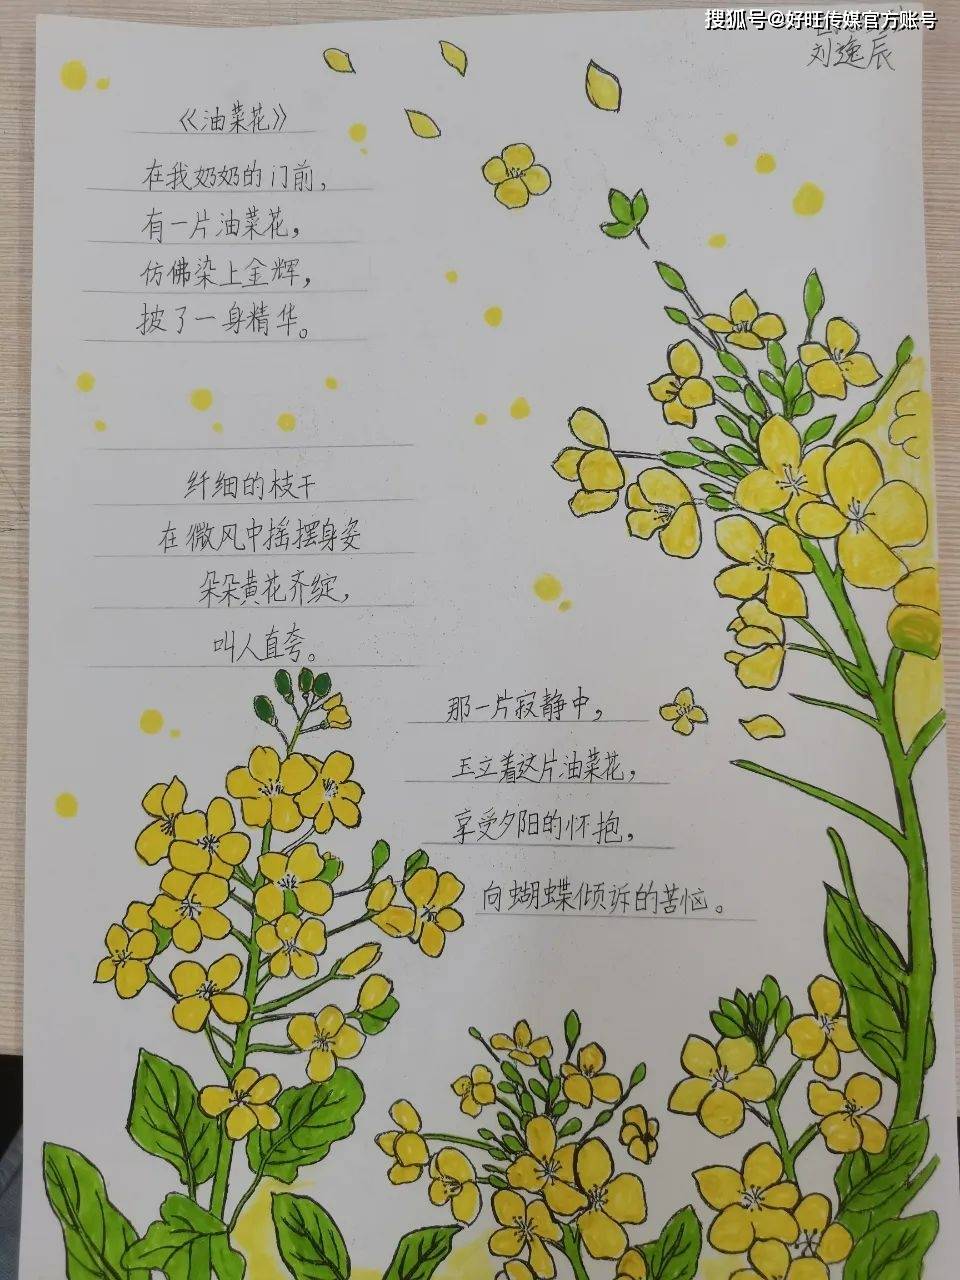 搜狐号@好旺传媒官方账号
刘逸辰
《油菜花》
在我奶奶的门前，
有一片油菜花，
仿佛染上金辉，
披了一身精华。
纤细的枝干
在微风中摇摆身姿
朵朵黄花齐绽，
叫人直夸。
那一片寂静中，
玉立着这片油菜花，
享受夕阳的怀抱，
向蝴蝶倾诉的苦恼。